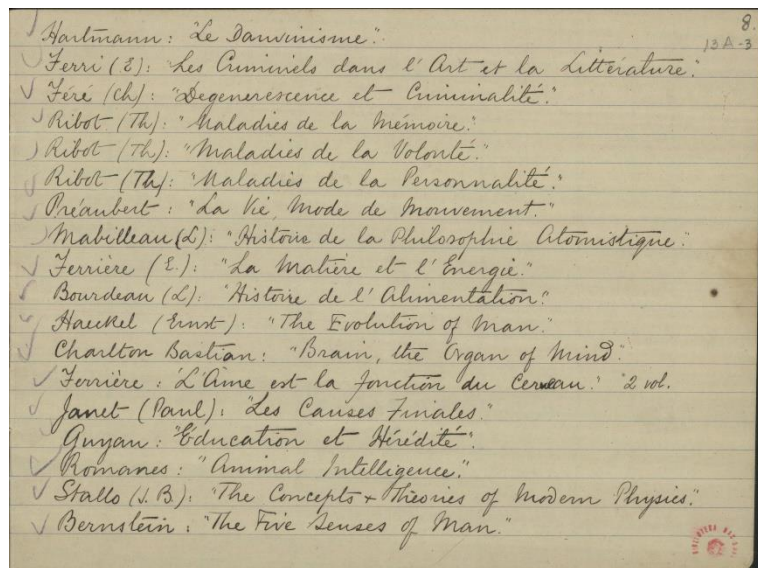 8.
13A-3
Hartmann: "Le Darwinisme".
Ferri (E): "Les Criminels dans l'Art et la Littérature."
Féré (Ch): "Dégénérescence et Criminalité."
Ribot (Th): "Maladies de la Mémoire."
Ribot (Th): "Maladies de la Volonté."
Ribot (Th): "Maladies de la Personnalité."
Préaubert: "La Vie, Mode de Mouvement."
Mabilleau (L): "Histoire de la Philosophie Atomistique."
Ferrière (E.): "La Matière et l'Énergie."
Bourdeau (L): "Histoire de l'Alimentation."
Haeckel (Ernst): "The Evolution of Man."
Charlton Bastian: "Brain, the Organ of Mind".
Ferrière: "L'Ame est la fonction du Cerveau." 2 vol.
Janet (Paul): "Les Causes Finales."
Guyau: "Éducation et Hérédité".
Romanes: "Animal Intelligence."
Stallo (J. B.): "The Concepts + Theories of Modern Physics."
Bernstein: "The Five Senses of Man."